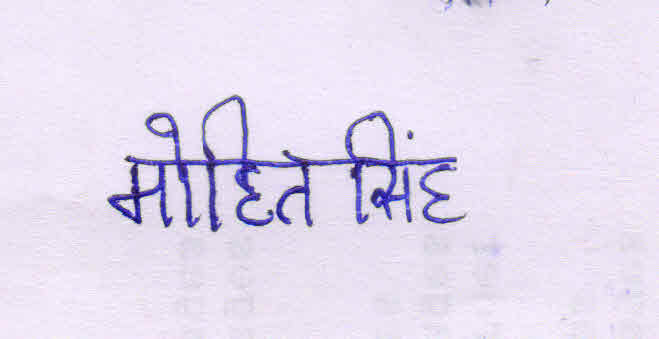 मोहित सिंह